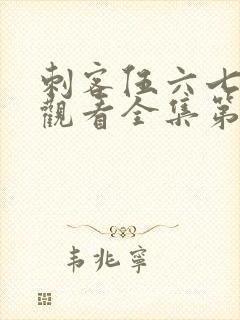 刺客伍六七
觀看全集第
韦兆寧